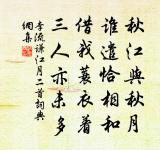 秋江與秋月
誰遣恰相和
借我蓑衣着
三人亦未多
李流謙江月二首詞典
網集